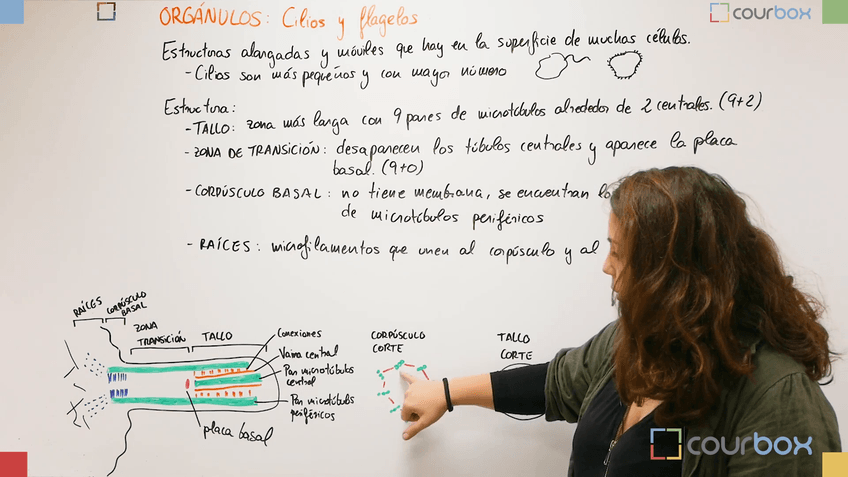 ORGÁNULOS: Cilios y flagelos
courbox
Estructuras alargadas y móviles que hay en la superficie de muchas células.
- Cilios son más pequeños y con mayor número
Estructura:
- TALLO: zona más larga con 9 pares de microtúbulos alrededor de 2 centrales. (9+2)
- ZONA DE TRANSICIÓN: desaparecen los túbulos centrales y aparece la placa
basal. (9+0)
- CORPÚSCULO BASAL: no tiene membrana, se encuentran
de microtúbulos periféricos
- RAÍCES: microfilamentos que unen al corpúsculo y al
RAÍCES
CORPÚSCULO
BASAL
ZONA
TRANSICIÓN
TALLO
Conexiones
Vaina central
Par microtúbulos
central
Par microtúbulos
periféricos
placa basal
CORPÚSCULO
CORTE
TALLO
CORTE
courbox